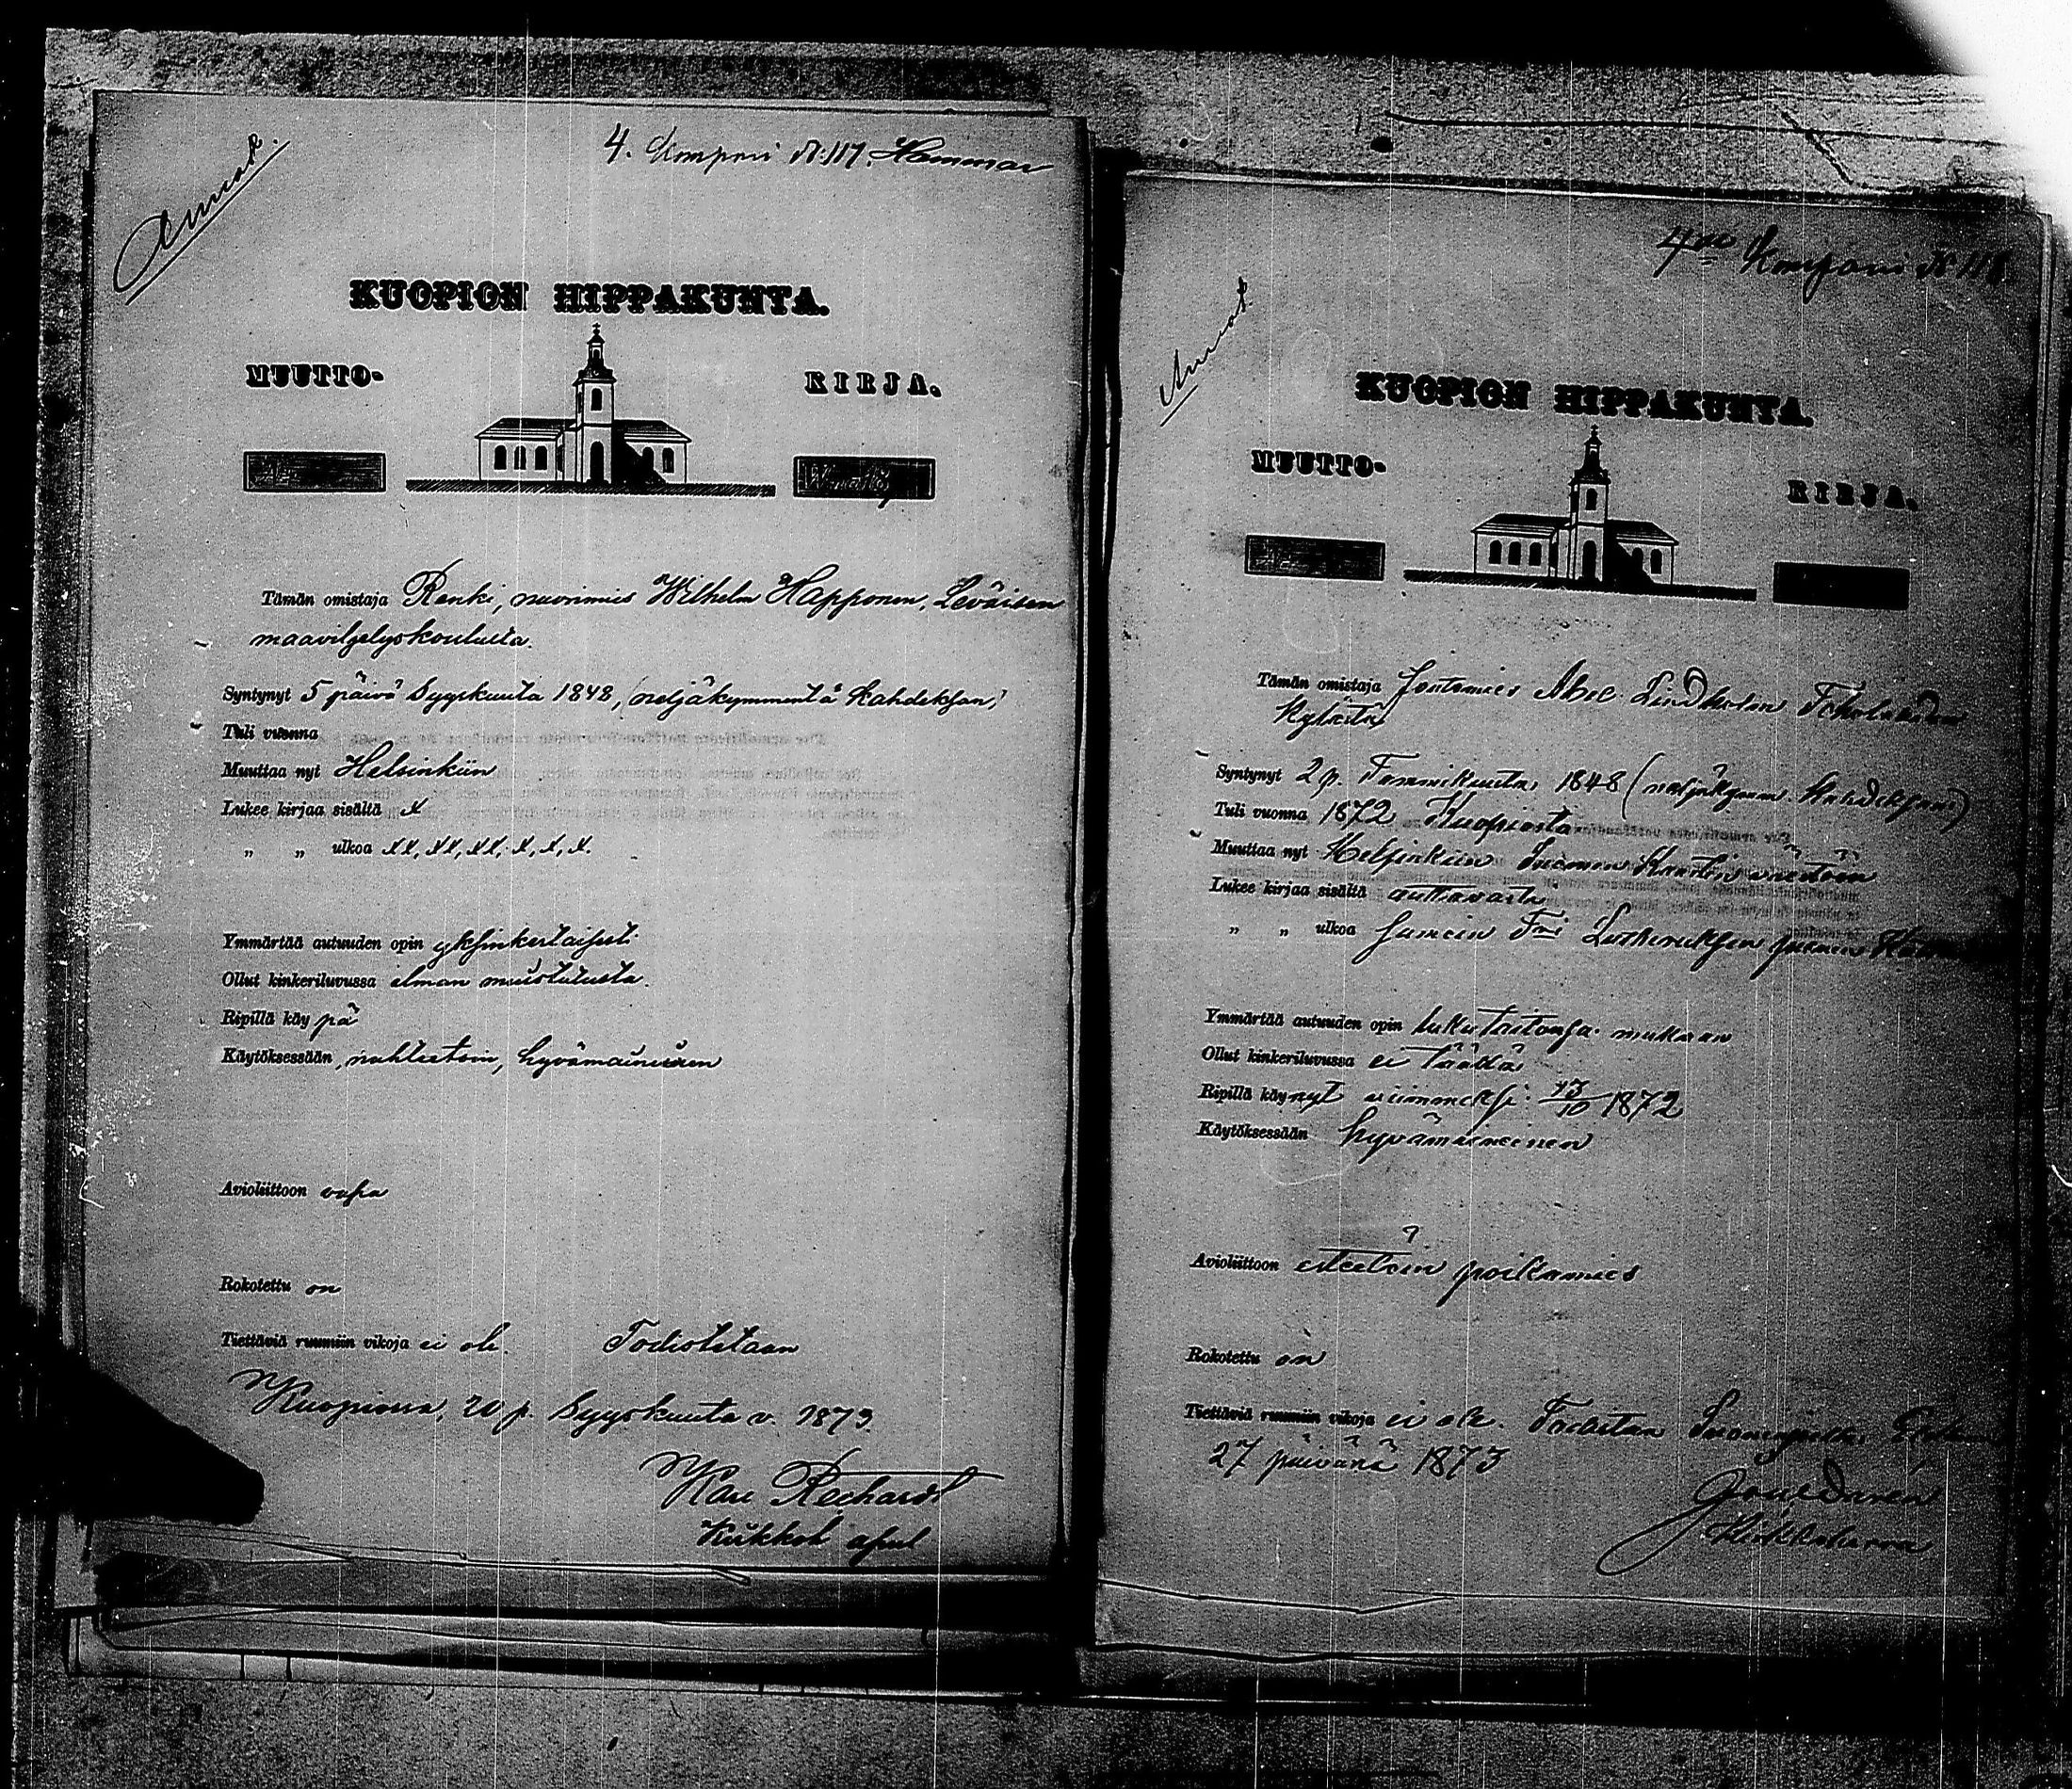 4. Kompani N:117. Hammar
KUOPION HIPPAKUNTA.
MUUTTO- KIRJA.
Tämän omistaja Renki, nuorimies Wilhelm Happonen, Leväisen
maaviljelyskoulusta.
Syntynyt 5 päivä Syyskuuta 1848, (neljäkymmentä kahdeksan)
Tuli vuonna
Muuttaa nyt Helsinkiin
Lukee kirjaa sisältä X
„ „ ulkoa XX, XX, XX, X, X, X.
Ymmärtää autuuden opin yksinkertaisesti
Ollut kinkeriluvussa ilman muistutusta.
Ripillä käy pä
Käytöksessään nuhteetoin, hyvämaineinen
Avioliittoon vapa
Rokotettu on
Tiettäviä ruumiin vikoja ei ole. Todistetaan
Kuopiossa, 20 p. Syyskuuta v. 1873.
Rechardt
Kirkkoh apul
4de Kompani N:118
KUOPION HIPPAKUNTA.
MUUTTO- KIRJA.
Tämän omistaja Joutomies Abel Lindholm
Kylästä
Syntynyt 2 p. Tammikuuta 1848 (neljäkymm. kahdeksan)
Tuli vuonna 1872 Kuopiosta
Muuttaa nyt Helsinkiin Suomen Kaartin väestöön
Lukee kirjaa sisältä auttavasti
„ „ ulkoa Lutheruksen
Ymmärtää autuuden opin lukutaitonsa mukaan
Ollut kinkeriluvussa ei täällä
Ripillä käynyt viimmeksi 13/10 1872
Käytöksessään hyvämaineinen
Avioliittoon esteetöin poikamies
Rokotettu on
Tiettäviä ruumiin vikoja ei ole. Todistan
27 päivänä 1873
Kirkkoherra